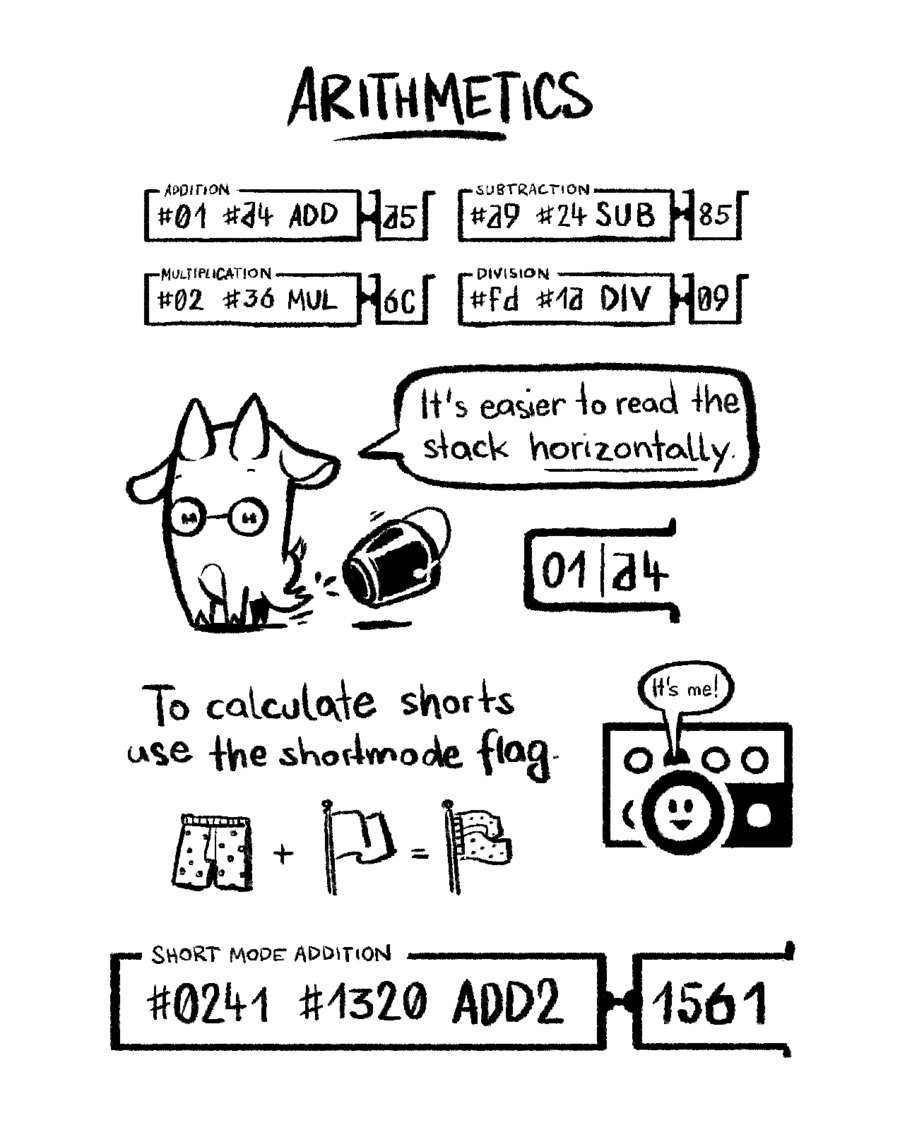 ARITHMETICS
ADDITION
#01 #a4 ADD a5
SUBTRACTION
#a9 #24 SUB 85
MULTIPLICATION
#02 #36 MUL 6C
DIVISION
#fd #1a DIV 09
It's easier to read the
stack horizontally.
01|a4
It's me!
To calculate shorts
use the shortmode flag.
+ =
SHORT MODE ADDITION
#0241 #1320 ADD2 1561